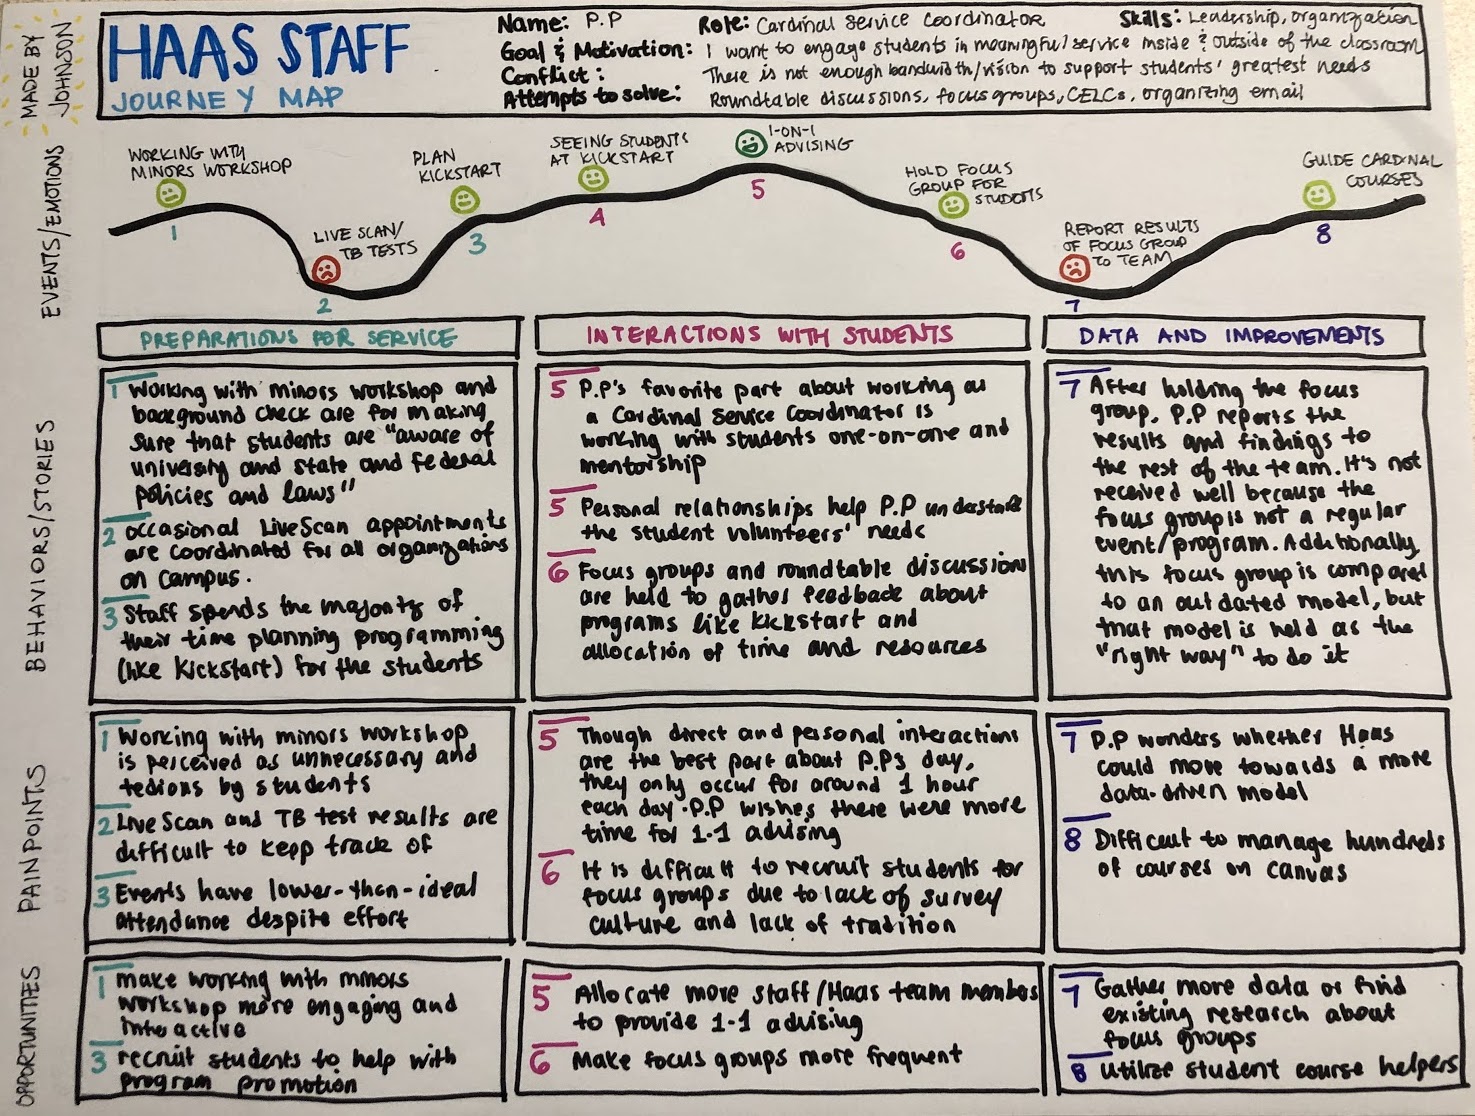 MADE BY
JOHNSON
HAAS STAFF
JOURNEY MAP
Name: P.P Role: Cardinal Service Coordinator Skills: Leadership, organization
Goal & Motivation: I want to engage students in meaningful service inside & outside of the classroom
Conflict: There is not enough bandwidth/vision to support students' greatest needs
Attempts to solve: Roundtable discussions, focus groups, CELCs, organizing email
EVENTS/EMOTIONS
WORKING WITH
MINORS WORKSHOP
1
LIVE SCAN/
TB TESTS
2
PLAN
KICKSTART
3
SEEING STUDENTS
AT KICKSTART
4
1-ON-1
ADVISING
5
HOLD FOCUS
GROUP FOR
STUDENTS
6
REPORT RESULTS
OF FOCUS GROUP
TO TEAM
7
GUIDE CARDINAL
COURSES
8
PREPARATIONS FOR SERVICE
INTERACTIONS WITH STUDENTS
DATA AND IMPROVEMENTS
BEHAVIORS/STORIES
1 Working with minors workshop and
background check are for making
sure that students are "aware of
university and state and federal
policies and laws"
2 occasional LiveScan appointments
are coordinated for all organizations
on campus.
3 Staff spends the majority of
their time planning programming
(like Kickstart) for the students
5 P.P's favorite part about working as
a Cardinal Service Coordinator is
working with students one-on-one and
mentorship
5 Personal relationships help P.P understand
the student volunteers' needs
6 Focus groups and roundtable discussion
are held to gather feedback about
programs like Kickstart and
allocation of time and resources
7 After holding the focus
group, P.P reports the
results and findings to
the rest of the team. It's not
received well because the
focus group is not a regular
event/program. Additionally
this focus group is compared
to an outdated model, but
that model is held as the
"right way" to do it
PAIN POINTS
1 Working with minors workshop
is perceived as unnecessary and
tedious by students
2 Live Scan and TB test results are
difficult to keep track of
3 Events have lower-than-ideal
attendance despite effort
5 Though direct and personal interactions
are the best part about P.P's day,
they only occur for around 1 hour
each day. P.P wishes there were more
time for 1-1 advising
6 It is difficult to recruit students for
focus groups due to lack of survey
culture and lack of tradition
7 P.P wonders whether Haas
could move towards a more
data-driven model
8 Difficult to manage hundreds
of courses on canvas
OPPORTUNITIES
1 make working with minors
workshop more engaging and
interactive
3 recruit students to help with
program promotion
5 Allocate more staff/Haas team members
to provide 1-1 advising
6 Make focus groups more frequent
7 Gather more data or find
existing research about
focus groups
8 utilize student course helpers